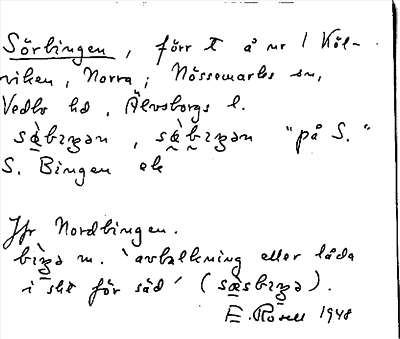 Sörbingen, förr t å nr 1 Köl-
viken, Norra; Nössemarks sn,
Vedbo hd, Älvsborgs l.
sæ̀bɪŋən, sæ̀bɪŋən "på S."
S. Bingen ek
Jfr Nordbingen.
bìŋə m. 'avbalkning eller låda
i sht för säd' (sæsbɪŋə).
E. Rosell 1948